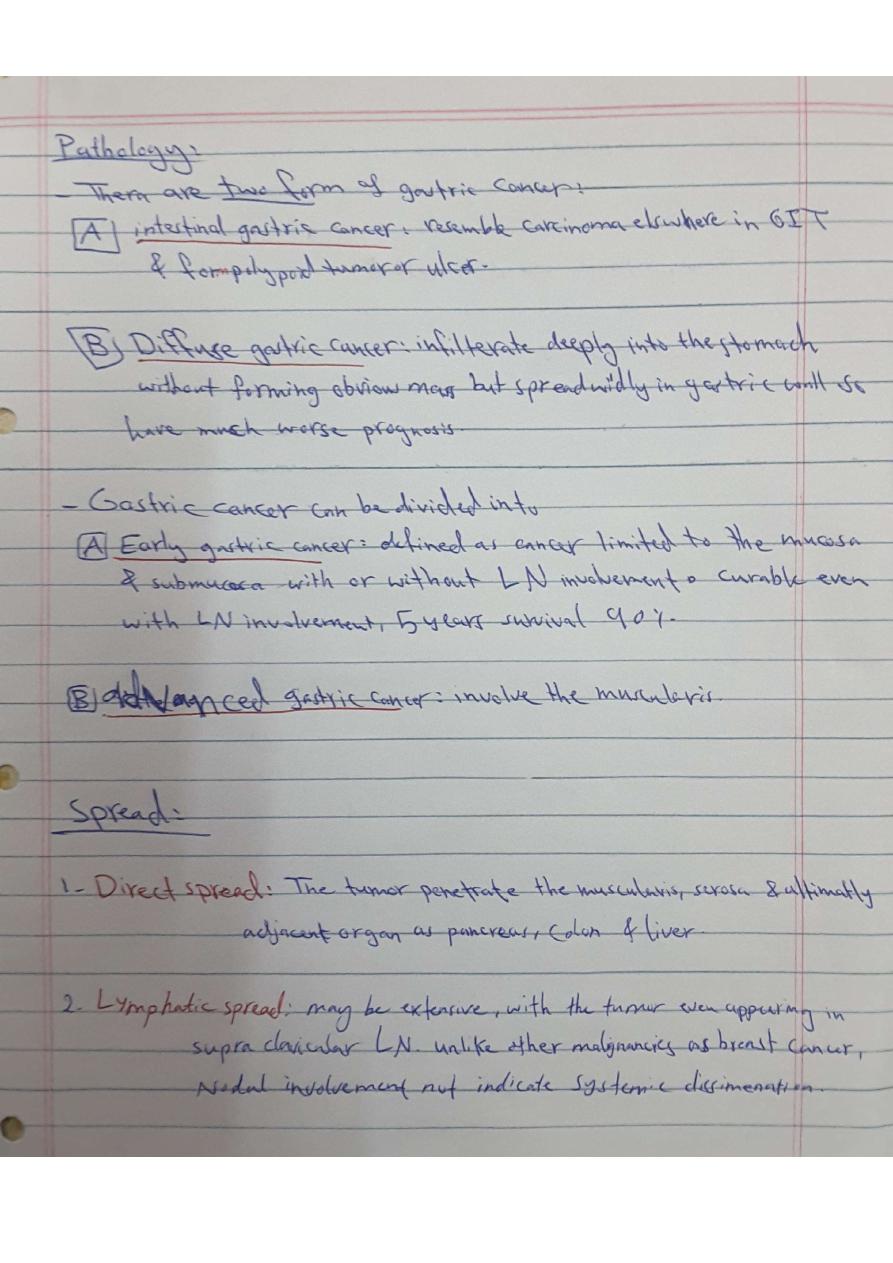 Pathology:
- Thern are two form of gastric cancer:
A intestinal gastric cancer: resemble carcinoma elswhere in GIT
& form polypoid tumor or ulcer.
B Diffuse gastric cancer: infilterate deeply into the stomach
without forming obviow mass but spread widly in gastric wall so
have much worse prognosis.
- Gastric cancer can be divided into
A Early gastric cancer: defined as cancer limited to the mucosa
& submucosa with or without LN involvement o curable even
with LN involvement, 5 years survival 90%.
B advanced gastric cancer: involve the muscularis.
Spread:
1- Direct spread: The tumor penetrate the muscularis, serosa & ultimatly
adjacent organ as pancreas, colon & liver.
2. Lymphatic spread: may be extensive, with the tumor even appearing in
supra clavicular LN. unlike other malignancies as breast cancer,
Nodal involvement not indicate systemic dissimenation.